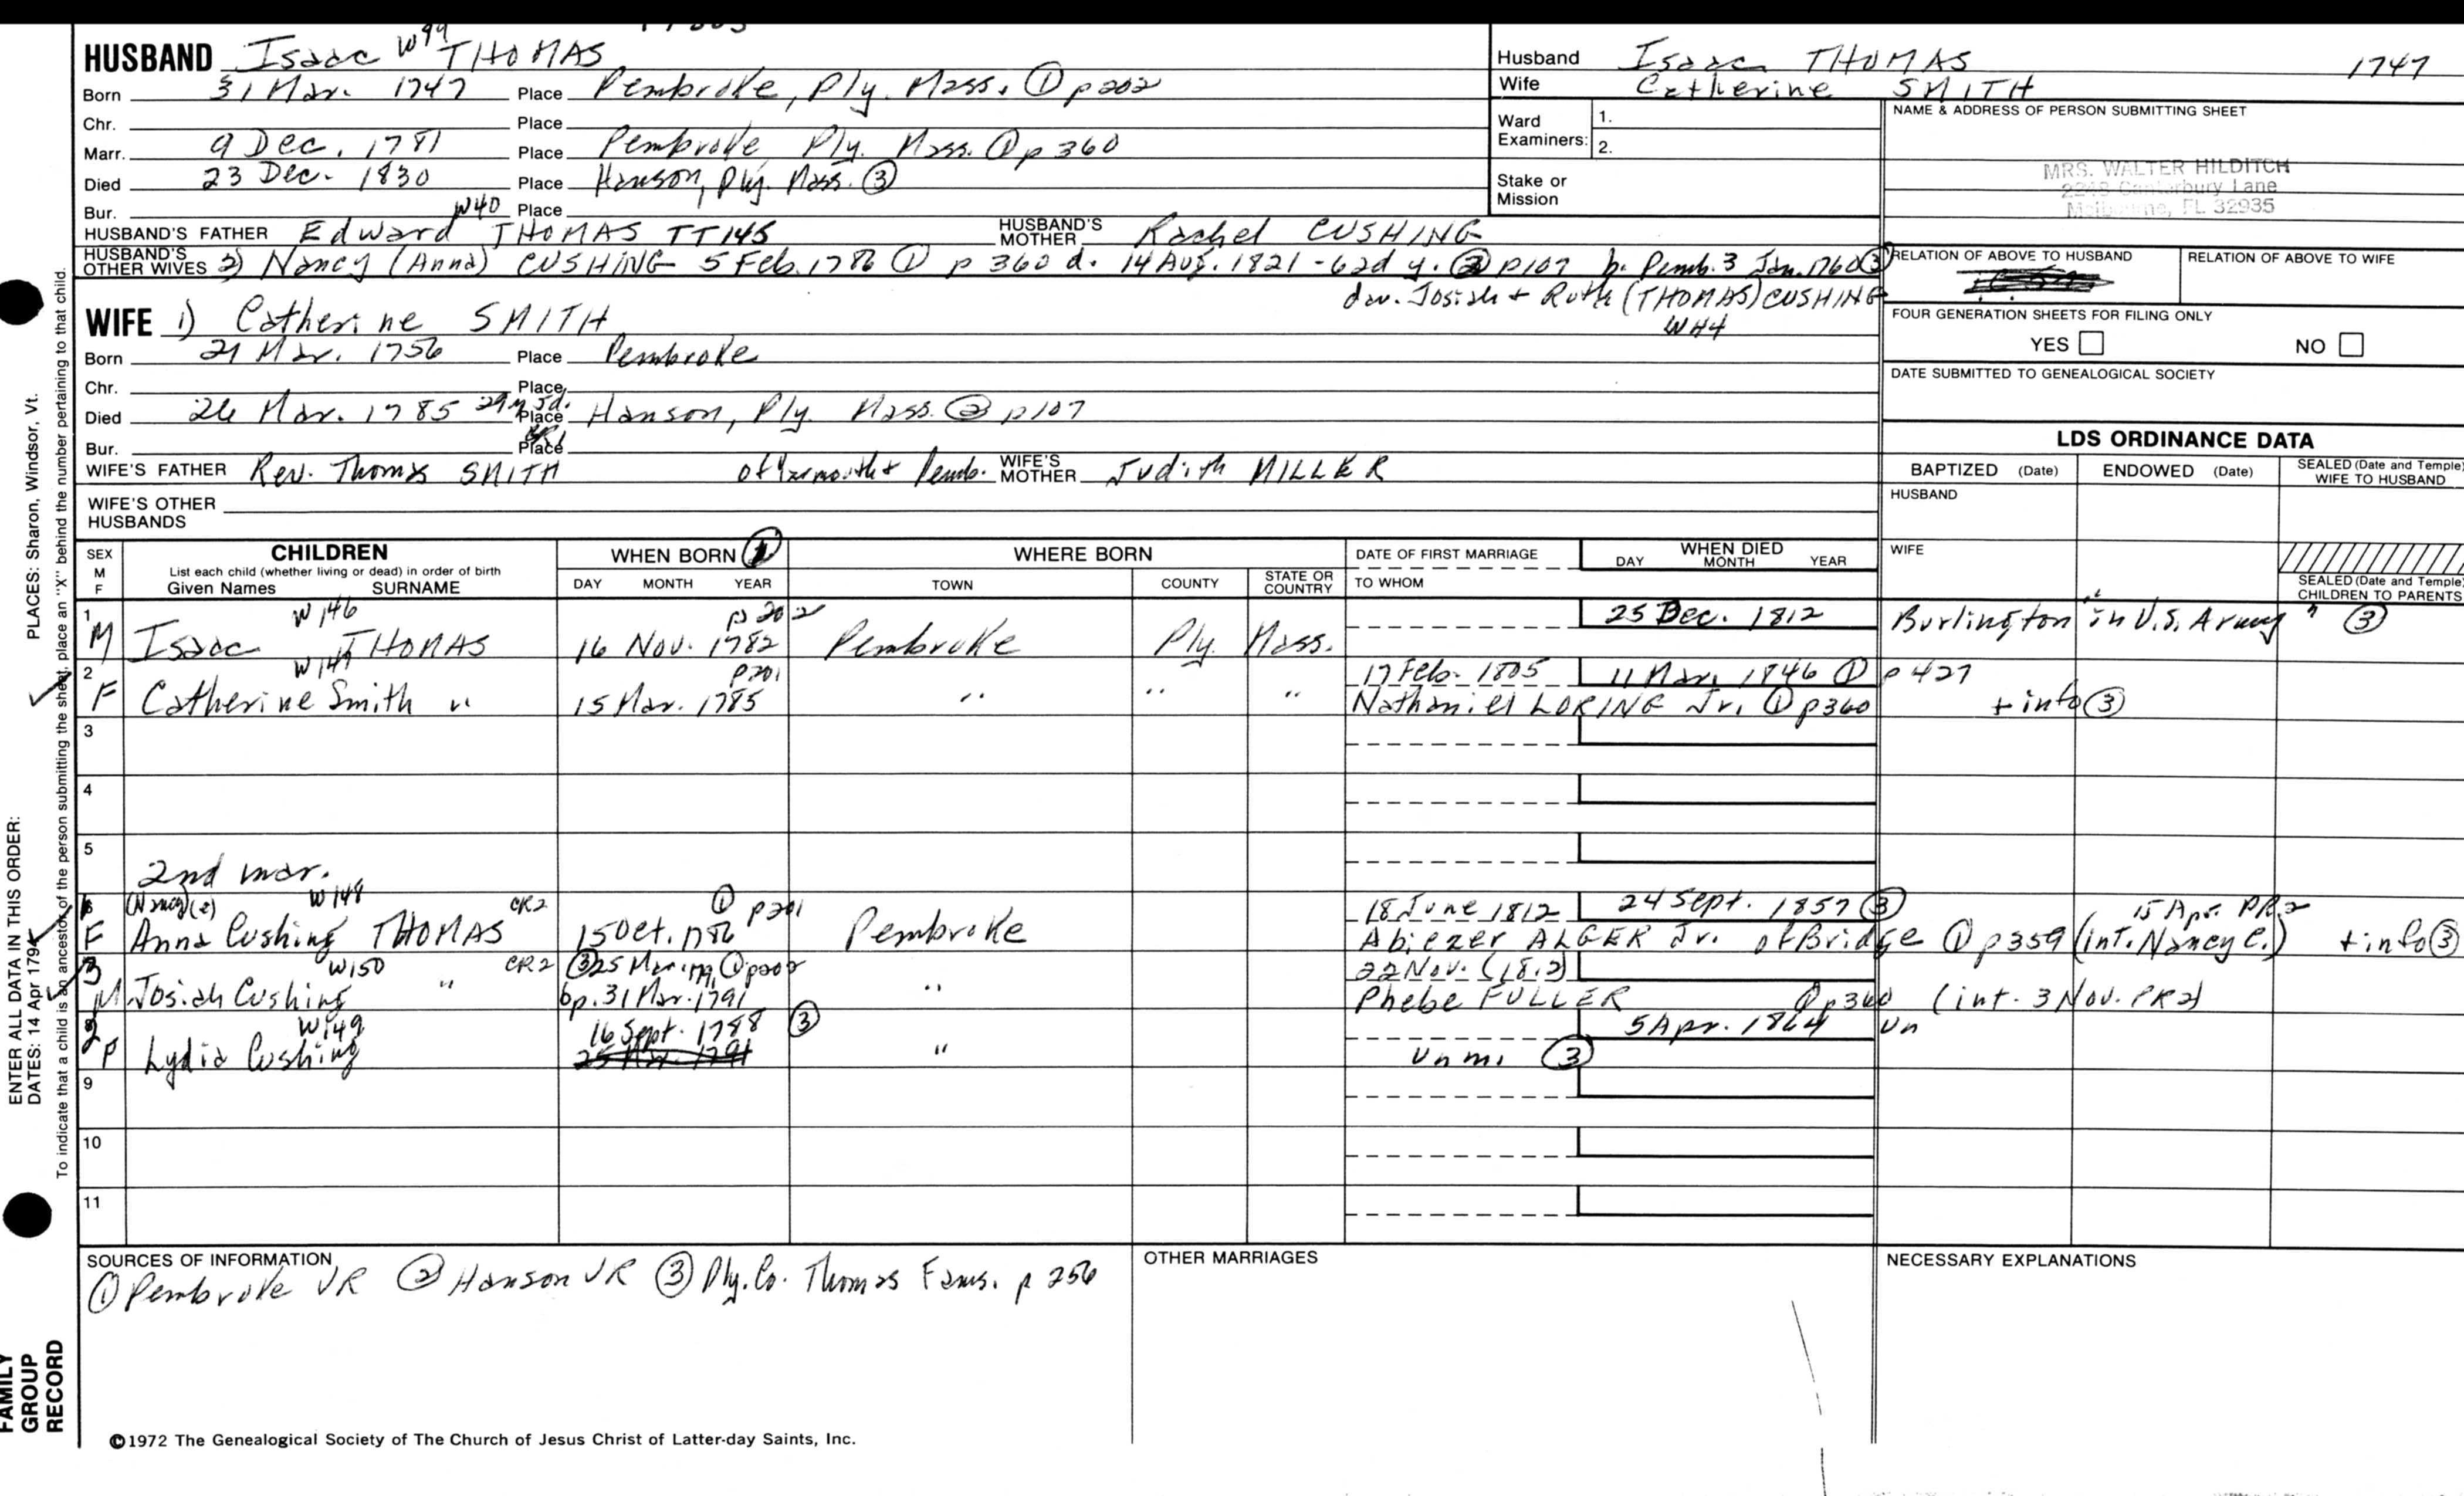 HUSBAND Isaac W99 THOMAS
Born 31 Mar. 1747 Place Pembroke, Ply. Mass. ① p202
Chr. Place
Marr. 9 Dec. 1781 Place Pembroke Ply. Mass. ① p 360
Died 23 Dec. 1830 Place Hanson, Ply. Mass. ③
Bur. Place
HUSBAND'S FATHER Edward W40 THOMAS TT145 HUSBAND'S MOTHER Rachel CUSHING
HUSBAND'S OTHER WIVES 2) Nancy (Anna) CUSHING 5 Feb. 1786 ① p 360 d. 14 Aug. 1821 - 62d y. ② p107 b. Pemb. 3 Jan. 1760 ③
dau. Josiah + Ruth (THOMAS) CUSHING
W44
WIFE 1) Catherine SMITH
Born 21 Mar. 1756 Place Pembroke
Chr. Place
Died 26 Mar. 1785 29 y 5d. Place Hanson, Ply. Mass. ② p107
Bur. Place
WIFE'S FATHER Rev. Thomas SMITH of Yarmouth + Pemb. WIFE'S MOTHER Judith MILLER
WIFE'S OTHER HUSBANDS
Husband Isaac THOMAS 1747
Wife Catherine SMITH
Ward Examiners: 1.
2.
Stake or Mission
NAME & ADDRESS OF PERSON SUBMITTING SHEET
MRS. WALTER HILDITCH
Lane
FL 32935
RELATION OF ABOVE TO HUSBAND RELATION OF ABOVE TO WIFE
FOUR GENERATION SHEETS FOR FILING ONLY
YES NO
DATE SUBMITTED TO GENEALOGICAL SOCIETY
LDS ORDINANCE DATA
BAPTIZED (Date) ENDOWED (Date) SEALED (Date and Temple) WIFE TO HUSBAND
HUSBAND
WIFE
SEALED (Date and Temple) CHILDREN TO PARENTS
SEX M F
CHILDREN
List each child (whether living or dead) in order of birth
Given Names SURNAME
WHEN BORN ①
DAY MONTH YEAR
WHERE BORN
TOWN COUNTY STATE OR COUNTRY
DATE OF FIRST MARRIAGE
TO WHOM
WHEN DIED
DAY MONTH YEAR
1 W146 p 202 25 Dec. 1812 Burlington "in U.S. Army" ③
M Isaac THOMAS 16 Nov. 1782 Pembroke Ply. Mass.
2 W147 p201 17 Feb. 1805 11 Mar. 1846 ① p 427
F Catherine Smith " 15 Mar. 1785 " " " Nathaniel LORING Jr. ① p360 + info ③
3
4
5
2nd mar.
(Nancy) W148 CR2 ① p201 18 June 1812 24 Sept. 1857 ③ 15 Apr. PR2
F Anna Cushing THOMAS 15 Oct. 1786 Pembroke Abiezer ALGER Jr. of Bridge ① p359 (int. Nancy C.) + info ③
3 W150 CR2 ③ 25 Mar. ① p202 22 Nov. (1812)
M Josiah Cushing " bp. 31 Mar. 1791 " Phebe FULLER ① p360 (int. 3 Nov. PR2)
2 W149 16 Sept. 1788 ③ 5 Apr. 1864 Un
F Lydia Cushing 25 Mar. 1791 " Unm. ③
9
10
11
SOURCES OF INFORMATION
① Pembroke VR ② Hanson VR ③ Ply. Co. Thomas Fams. p 256
OTHER MARRIAGES
NECESSARY EXPLANATIONS
©1972 The Genealogical Society of The Church of Jesus Christ of Latter-day Saints, Inc.
ENTER ALL DATA IN THIS ORDER:
DATES: 14 Apr 1794
PLACES: Sharon, Windsor, Vt.
To indicate that a child is an ancestor of the person submitting the sheet, place an "X" behind the number pertaining to that child.
FAMILY
GROUP
RECORD